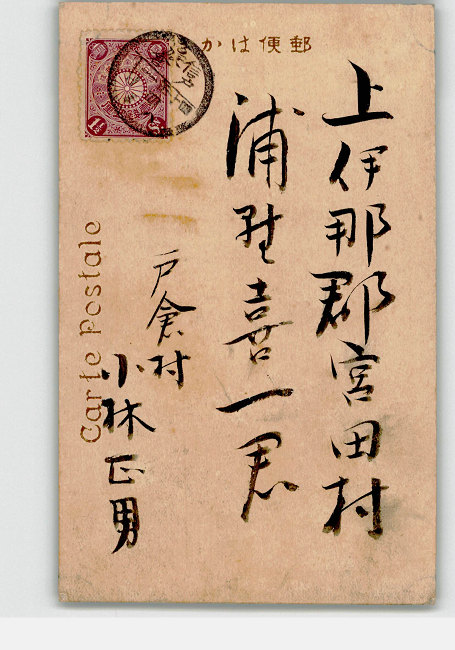 郵便はかき
上伊那郡宮田村
浦野喜一君
戸倉村
小林正男
Carte Postale
1½